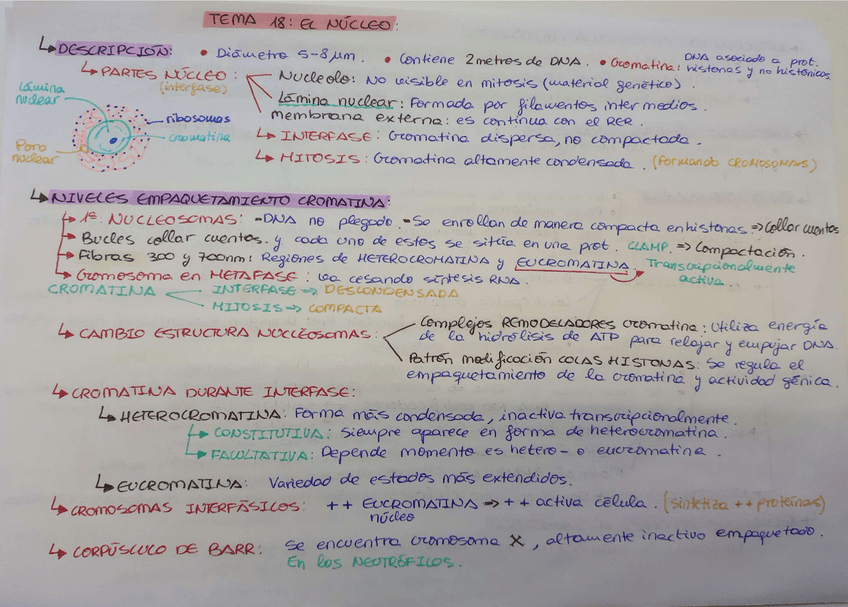 TEMA 18: EL NÚCLEO:
↳ DESCRIPCIÓN: • Diámetro 5-8 μm. • Contiene 2 metros de DNA. • Cromatina: DNA asociado a prot. histonas y no histónicas
↳ PARTES NÚCLEO: (interfase)
Nucleolo: No visible en mitosis (material genético).
Lámina nuclear: Formada por filamentos intermedios.
membrana externa: es continua con el RER.
Lámina nuclear
ribosomas
cromatina
Poro nuclear
↳ INTERFASE: Cromatina dispersa, no compactada.
↳ MITOSIS: Cromatina altamente condensada. (formando CROMOSOMAS)
↳ NIVELES EMPAQUETAMIENTO CROMATINA:
↳ 1º NUCLEOSOMAS: - DNA no plegado. - Se enrollan de manera compacta en histonas => Collar cuentas
↳ Bucles collar cuentas. y cada uno de estos se sitúa en una prot. CLAMP. => Compactación.
↳ Fibras 300 y 700nm: Regiones de HETEROCROMATINA y EUCROMATINA → Transcripcionalmente activa..
↳ Cromosoma en METAFASE: va cesando síntesis RNA.
CROMATINA
INTERFASE => DESCONDENSADA
MITOSIS => COMPACTA
↳ CAMBIO ESTRUCTURA NUCLEOSOMAS:
Complejos REMODELADORES cromatina: Utiliza energía
de la hidrólisis de ATP para relajar y empujar DNA.
Patrón modificación COLAS HISTONAS: Se regula el
empaquetamiento de la cromatina y actividad génica.
↳ CROMATINA DURANTE INTERFASE:
↳ HETEROCROMATINA: Forma más condensada, inactiva transcripcionalmente.
↳ CONSTITUTIVA: Siempre aparece en forma de heterocromatina.
↳ FACULTATIVA: Depende momento es hetero- o eucromatina.
↳ EUCROMATINA: Variedad de estados más extendidos.
↳ CROMOSOMAS INTERFÁSICOS: ++ EUCROMATINA → ++ activa célula. (sintetiza ++ proteínas)
núcleo
↳ CORPÚSCULO DE BARR: Se encuentra cromosoma X, altamente inactivo empaquetado.
En los NEUTRÓFILOS.